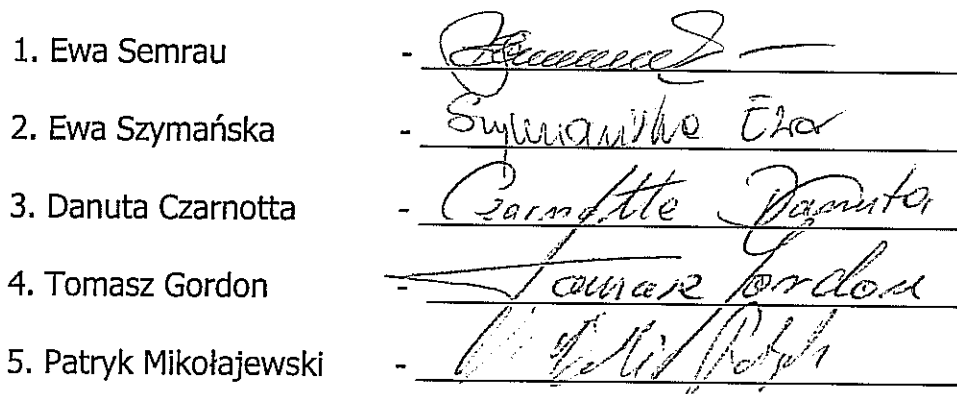 1. Ewa Semrau -
2. Ewa Szymańska - Szymańska Ewa
3. Danuta Czarnotta - Czarnotta Danuta
4. Tomasz Gordon - Tomasz Gordon
5. Patryk Mikołajewski -